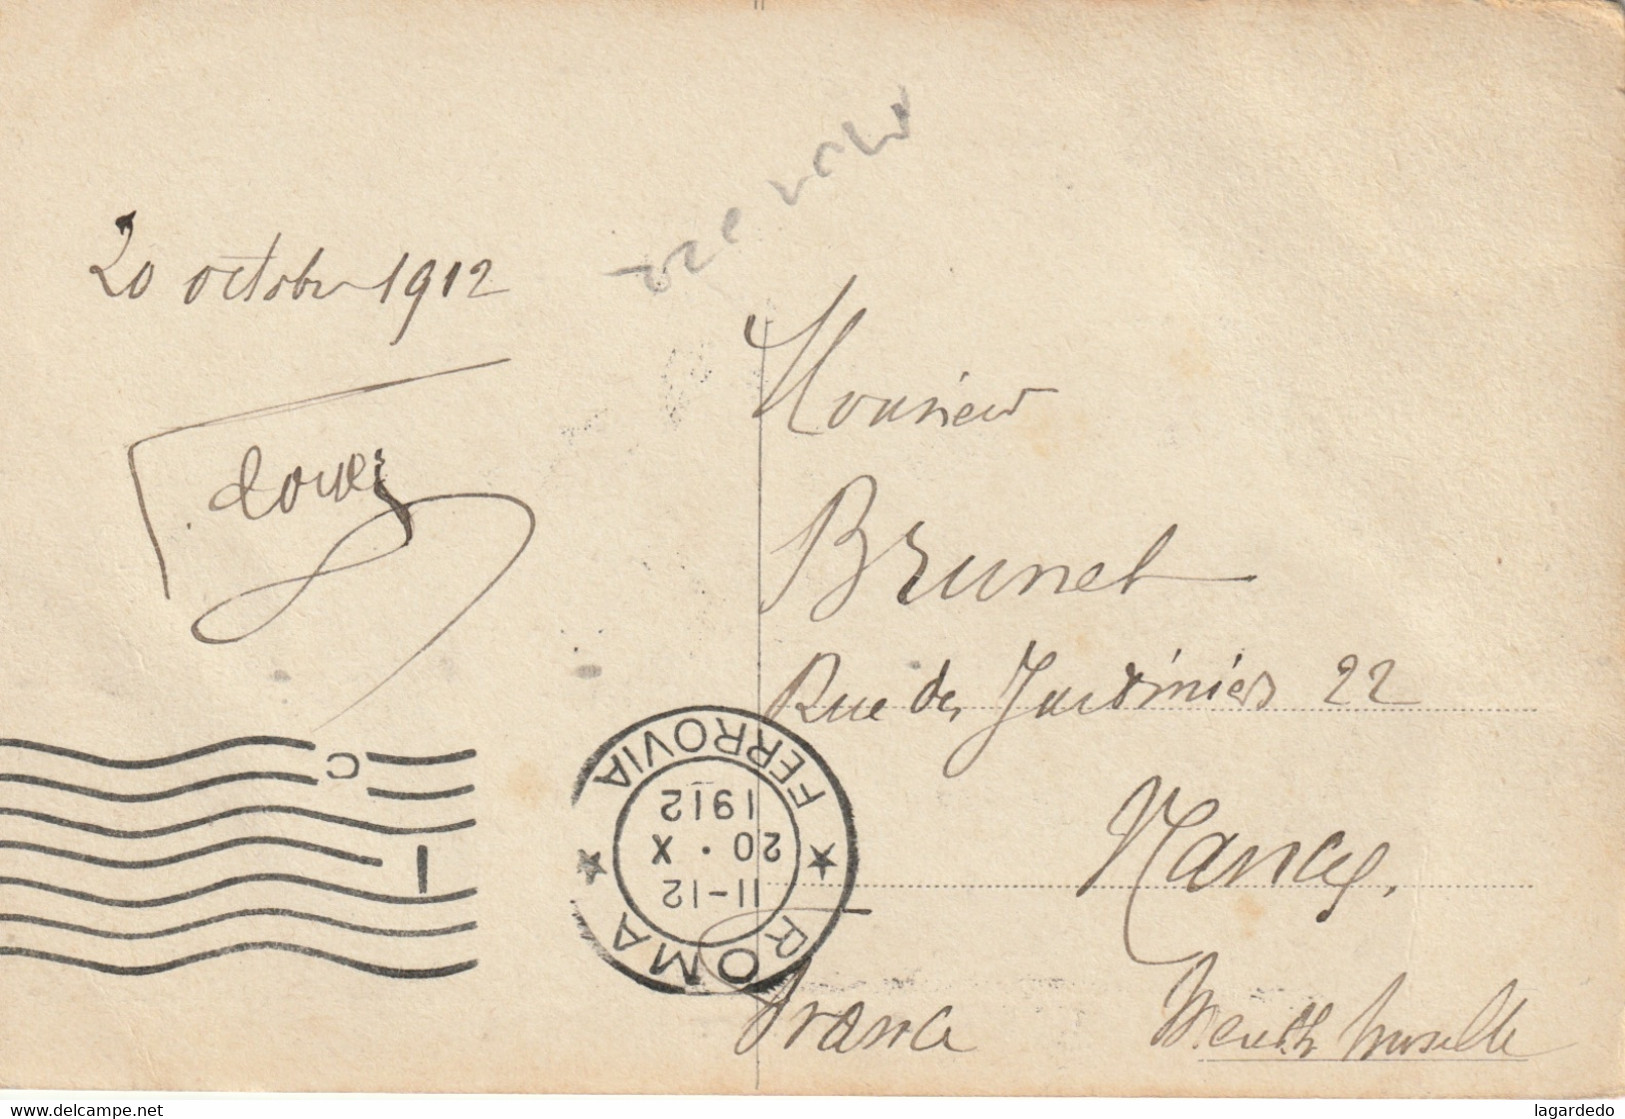 20 octobre 1912
Monsieur
Brunet
Rue des Jardiniers 22
Nancy.
France
Meurthe Moselle
ROMA
FERROVIA
11-12
20 · X
1912
C
I
www.delcampe.net
lagardedo